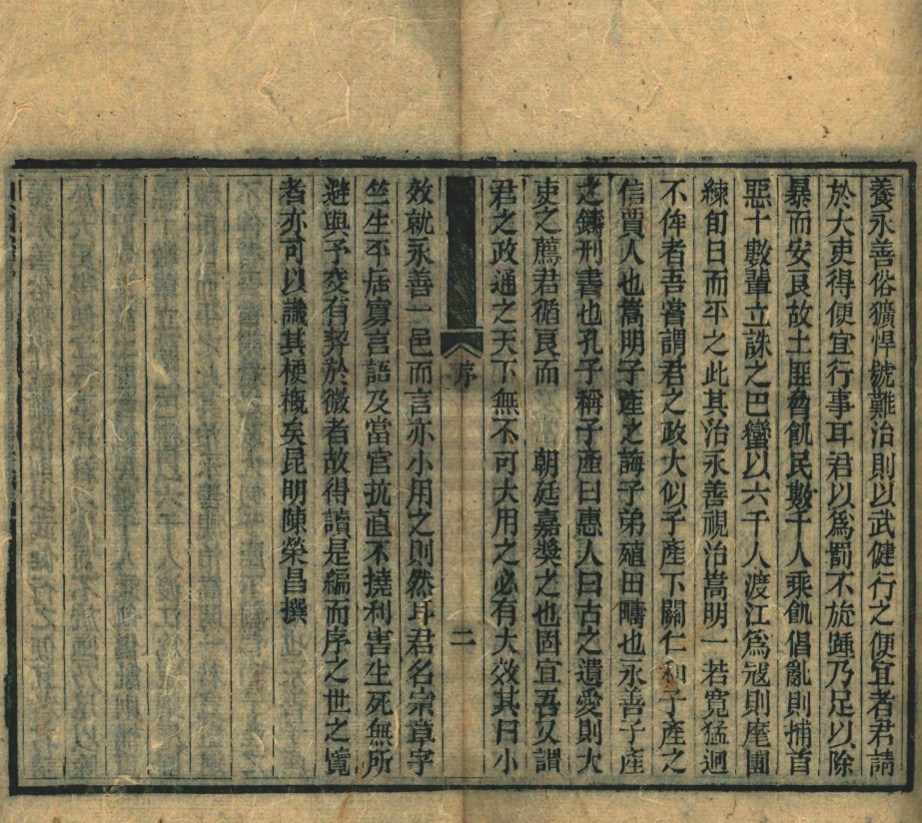 養永善俗獷悍號難治則以武健行之便宜者君請
於大吏得便宜行事耳君以爲罰不旋踵乃足以除
暴而安良故土匪脅飢民數千人乘飢倡亂則捕首
惡十數輩立誅之巴蠻以六千人渡江爲冦則麾團
練旬日而平之此其治永善視治嵩明一若寛猛迥
不侔者吾嘗謂君之政大似子產下關仁和子產之
信賈人也嵩明子產之誨子弟殖田疇也永善子產
之鑄刑書也孔子稱子產曰惠人曰古之遺愛則大
吏之薦君循良而 朝廷嘉奬之也固宜吾又謂
君之政通之天下無不可大用之必有大效其曰小
序
二
效就永善一邑而言亦小用之則然耳君名宗章字
竺生平居寡言語及當官抗直不撓利害生死無所
避與予交有契於微者故得讀是編而序之世之覽
者亦可以識其梗概矣昆明陳榮昌撰